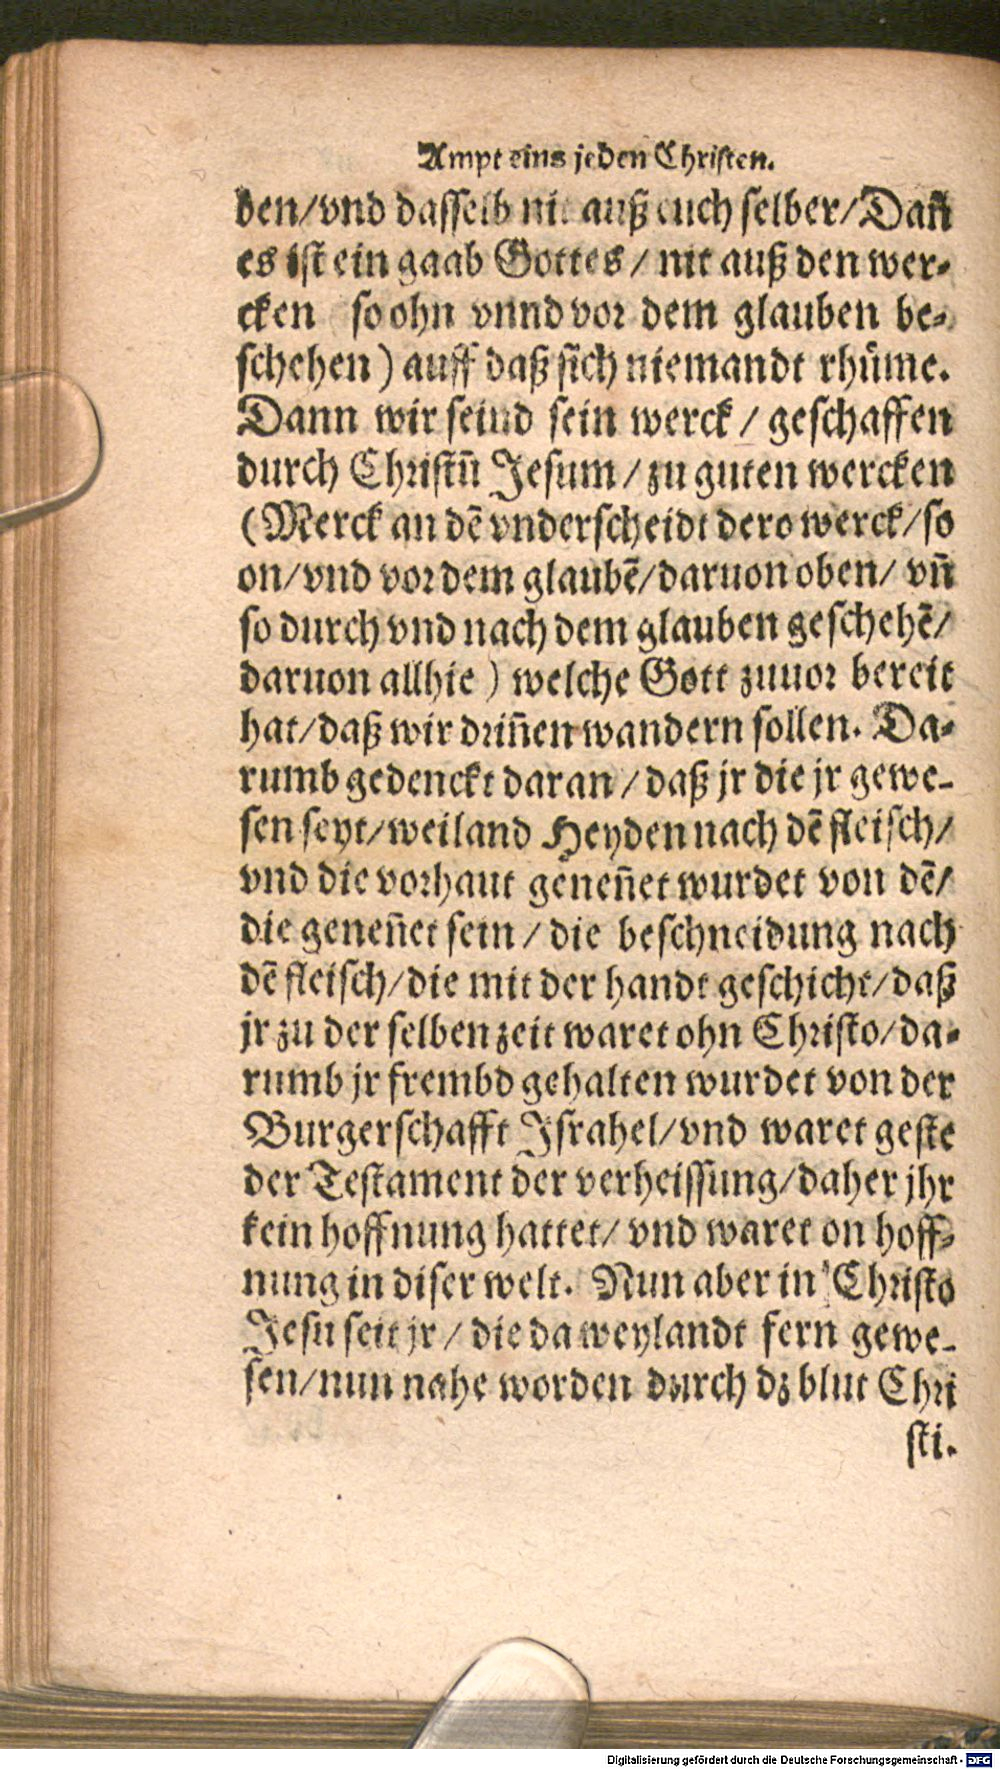 Ampt eins jeden Christen.
den/vnd dasselb nit auß euch selber/Dañ
es ist ein gaab Gottes / nit auß den wer-
cken so ohn vnnd vor dem glauben be-
schehen) auff daß sich niemandt rhůme.
Dann wir seind sein werck / geschaffen
durch Christũ Jesum / zu guten wercken
(Merck an dẽ vnderscheidt dero werck/so
on/vnd vor dem glaubẽ/daruon oben/ vñ
so durch vnd nach dem glauben geschehẽ/
daruon allhie ) welche Gott zuuor bereit
hat/daß wir driñen wandern sollen. Da-
rumb gedenckt daran / daß jr die jr gewe-
sen seyt/weiland Heyden nach dẽ fleisch/
vnd die vorhaut geneñet wurdet von dẽ/
die geneñet sein / die beschneidung nach
dẽ fleisch/die mit der handt geschicht/daß
jr zu der selben zeit waret ohn Christo/da-
rumb jr frembd gehalten wurdet von der
Burgerschafft Israhel/vnd waret geste
der Testament der verheissung/daher jhr
kein hoffnung hattet/ vnd waret on hoff-
nung in diser welt. Nun aber in Christo
Jesu seit jr / die da weylandt fern gewe-
sen/nun nahe worden durch dz blut Chri
sti.
Digitalisierung gefördert durch die Deutsche Forschungsgemeinschaft - DFG